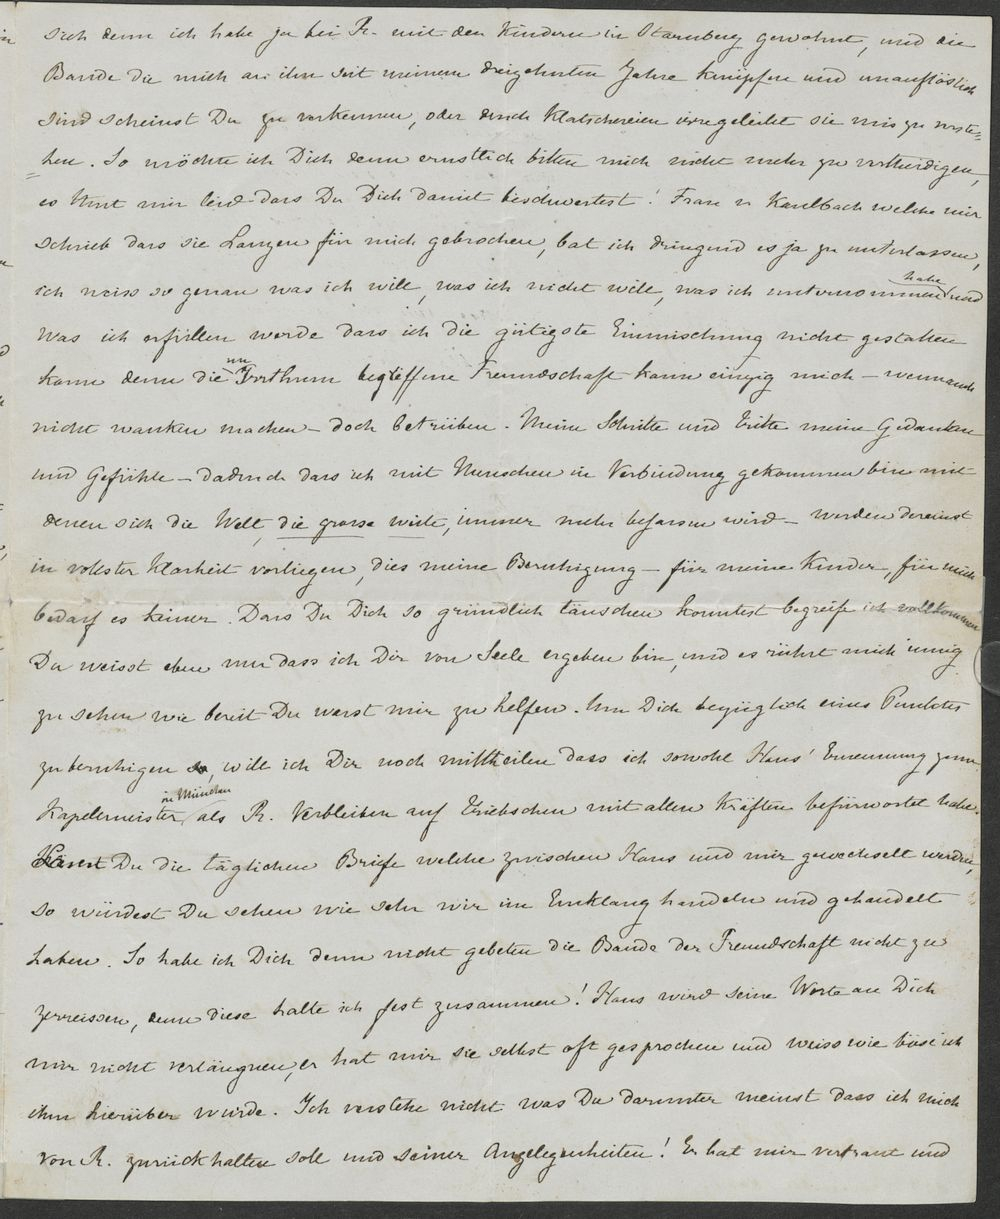 sich denn ich habe ja bei R. mit den Kindern in Starnberg gewohnt, und die
Bande die mich an ihn seit meinem dreizehnten Jahre knüpfen und unauflöslich
sind scheinst Du zu verkennen, oder durch Klatschereien irregeleitet sie miszuverste-
hen. So möchte ich Dich denn ernstlich bitten mich nicht mehr zu vertheidigen,
es thut mir leid dass Du Dich damit beschwertest! Frau v Kaulbach welche mir
schrieb dass sie Lanzen für mich gebrochen, bat ich dringend es ja zu unterlassen,
ich weiss so genau was ich will, was ich nicht will, was ich unternommen habe und
was ich erfüllen werde dass ich die gütigste Einmischung nicht gestatten
kann denn die im Irrthum begriffene Freundschaft kann einzig mich – wennauch
nicht wanken machen – doch betrüben. Meine Schritte und Tritte meine Gedanken
und Gefühle – dadurch dass ich mit Menschen in Verbindung gekommen bin mit
denen sich die Welt, die grosse weite, immer mehr befassen wird – werden dereinst
in vollster Klarheit vorliegen, dies meine Beruhigung – für meine Kinder, für mich
bedarf es keiner. Dass Du Dich so gründlich täuschen konntest begreife ich vollkommen
Du weisst eben nur dass ich Dir von Seele ergeben bin, und es rührt mich innig
zu sehen wie bereit Du warst mir zu helfen. Um Dich bezüglich eines Punktes
zu beruhigen, will ich Dir noch mittheilen dass ich sowohl Hans' Ernennung zum
Kapelmeister in München als R. Verbleiben auf Triebschen mit allen Kräften befürwortet habe.
Läsest Du die täglichen Briefe welche zwischen Hans und mir gewechselt werden,
so würdest Du sehen wie sehr wir im Einklang handeln und gehandelt
haben. So habe ich Dich denn nicht gebeten die Bande der Freundschaft nicht zu
zerreissen, denn diese halte ich fest zusammen! Hans wird seine Worte an Dich
mir nicht verläugnen, er hat mir sie selbst oft gesprochen und weiss wie böse ich
ihm hierüber wurde. Ich verstehe nicht was Du darunter meinst dass ich mich
von R. zurückhalten soll und seiner Angelegenheiten! Er hat mir vertraut und